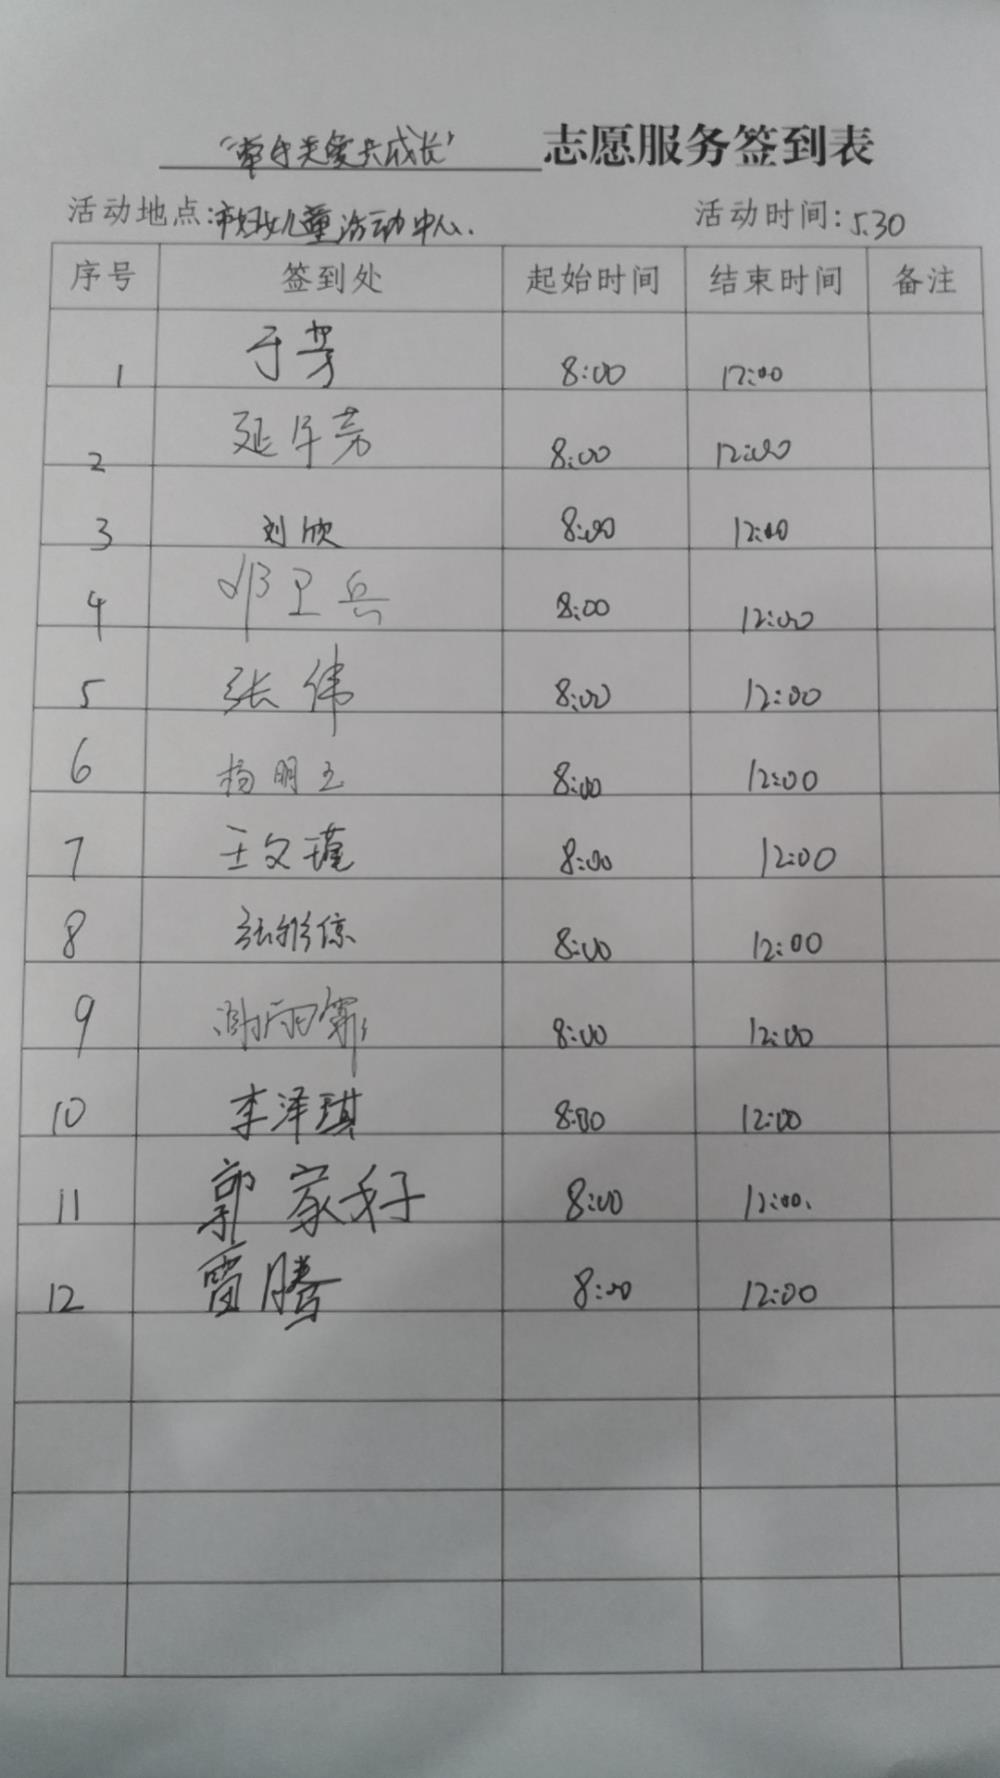 “牵手关爱共成长” 志愿服务签到表
活动地点:市妇女儿童活动中心. 活动时间:5.30
序号 签到处 起始时间 结束时间 备注
1 于芳 8:00 12:00
2 延 8:00 12:00
3 刘欣 8:00 12:00
4 邓卫兵 8:00 12:00
5 张伟 8:00 12:00
6 杨明玉 8:00 12:00
7 王文瑾 8:00 12:00
8 张 8:00 12:00
9 8:00 12:00
10 李泽琪 8:00 12:00
11 郭家 8:00 12:00.
12 雷腾 8:00 12:00